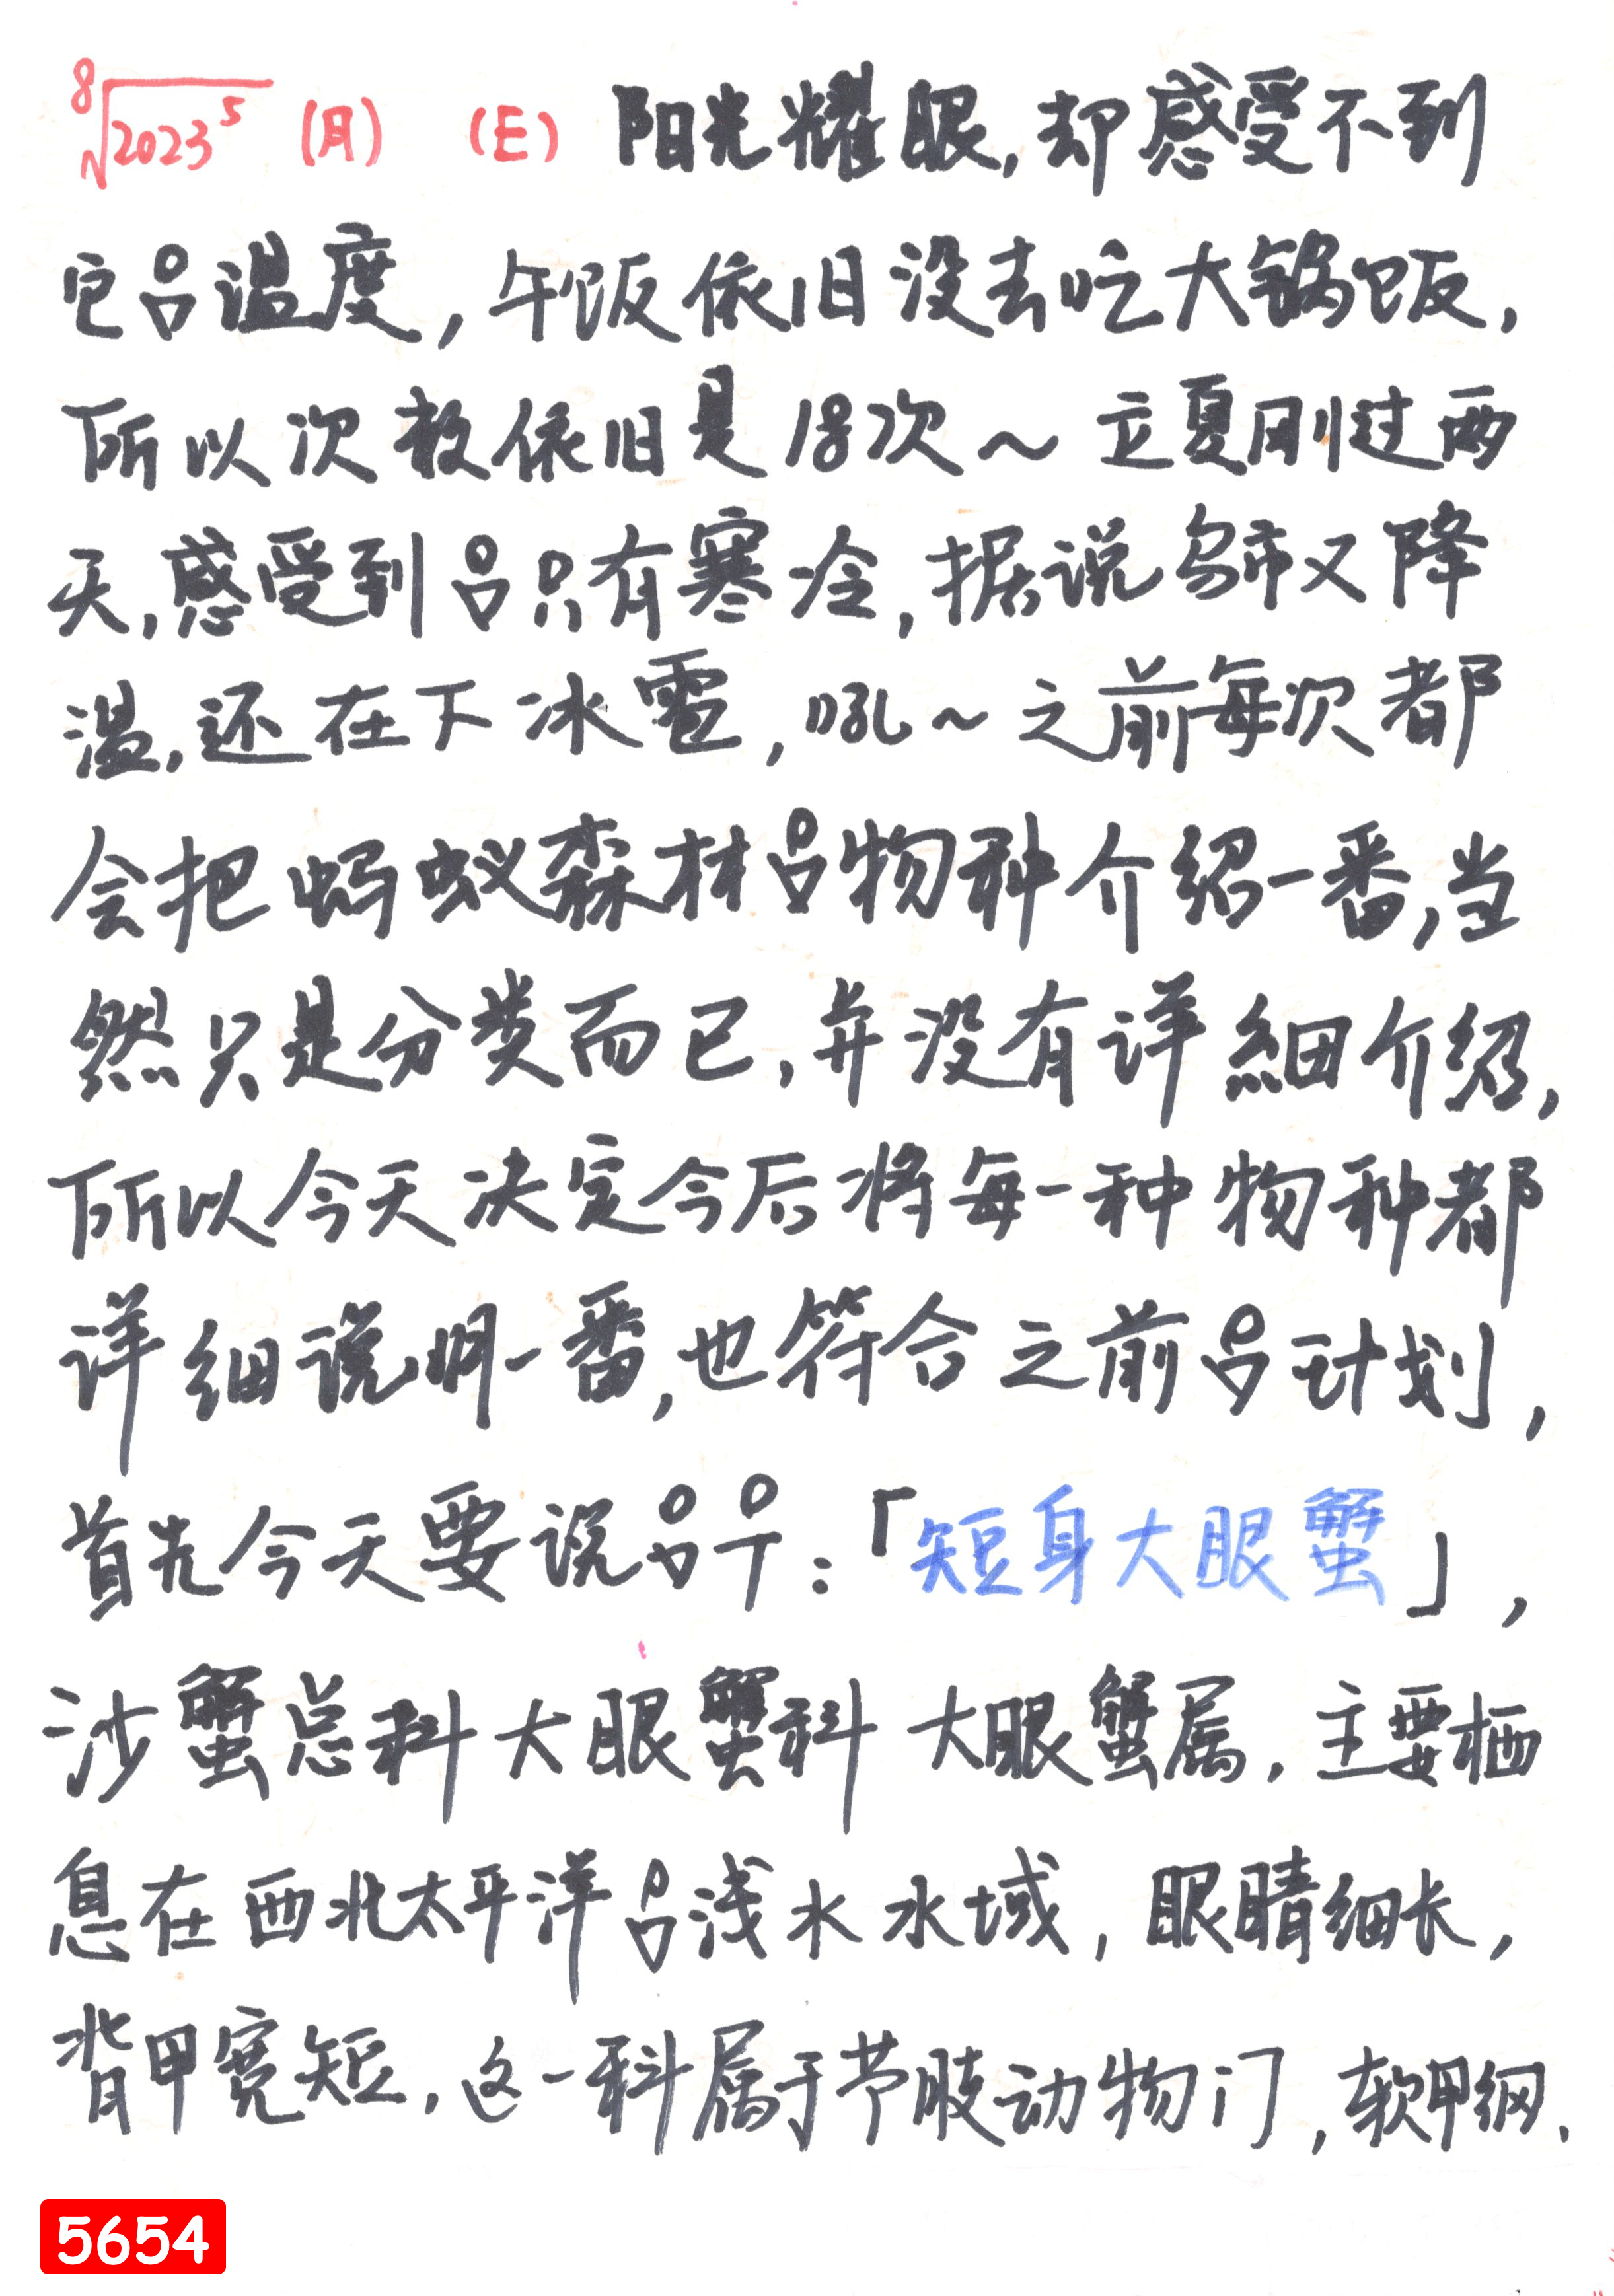 ⁸√2023⁵ (月) (E) 阳光耀眼,却感受不到
它吕温度,午饭依旧没去吃大锅饭,
所以次数依旧是18次~立夏刚过两
天,感受到吕只有寒冷,据说乌市又降
温,还在下冰雹,吼~之前每次都
会把蚂蚁森林吕物种介绍一番,当
然只是分类而已,并没有详細介绍,
所以今天决定今后将每一种物种都
详细说明一番,也符合之前吕计划,
首先今天要说吕:「短身大眼蟹」,
沙蟹总科大眼蟹科 大眼蟹属,主要栖
息在西北太平洋吕浅水水域,眼睛细长,
背甲宽短,这一科属于节肢动物门,软甲纲、
5654